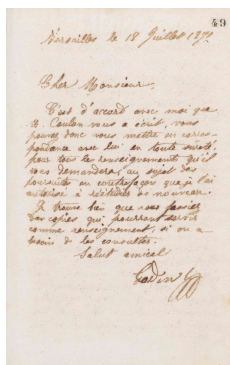 49
Versailles le 18 Juillet 187
Cher Monsieur,
C'est d'accord avec moi que
M. Coulon vous a écrit, vous
pouvez donc vous mettre en corres-
pondance avec lui en toute sûreté
pour tous les renseignements qu'il
vous demandera, au sujet des
poursuites en contrefaçons que je l'ai
autorisé à réitérer à nouveau.
Je trouve bon que vous fassiez
des copies qui pourront servir
comme renseignement, si on a
besoin de les consulter.
Salut amical
Godin